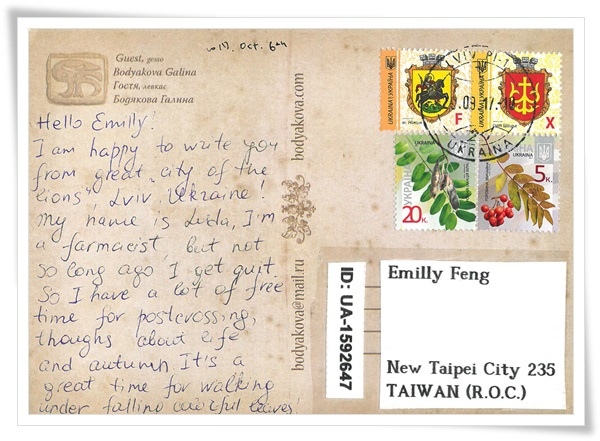 w 10. Oct. 6th
Guest, gesso
Bodyakova Galina
Гостя, левкас
Бодякова Галина
Hello Emilly!
I am happy to write you
from great "city of the
lions", Lviv, Ukraine!
My name is Lida, I'm
a farmacist, but not
so long ago I get quit.
So I have a lot of free
time for postcrossing,
thoughs about life
and autumn. It's a
great time for walking
under falling colorful leaves!
bodyakova.com
bodyakova@mail.ru
ID: UA-1592647
УКРАЇНА UKRAINE
F
УКРАЇНА UKRAINE
X
LVIV PI-1
.09.17.-18
UKRAINA
УКРАЇНА
UKRAINE
20к.
5к.
Emilly Feng
New Taipei City 235
TAIWAN (R.O.C.)